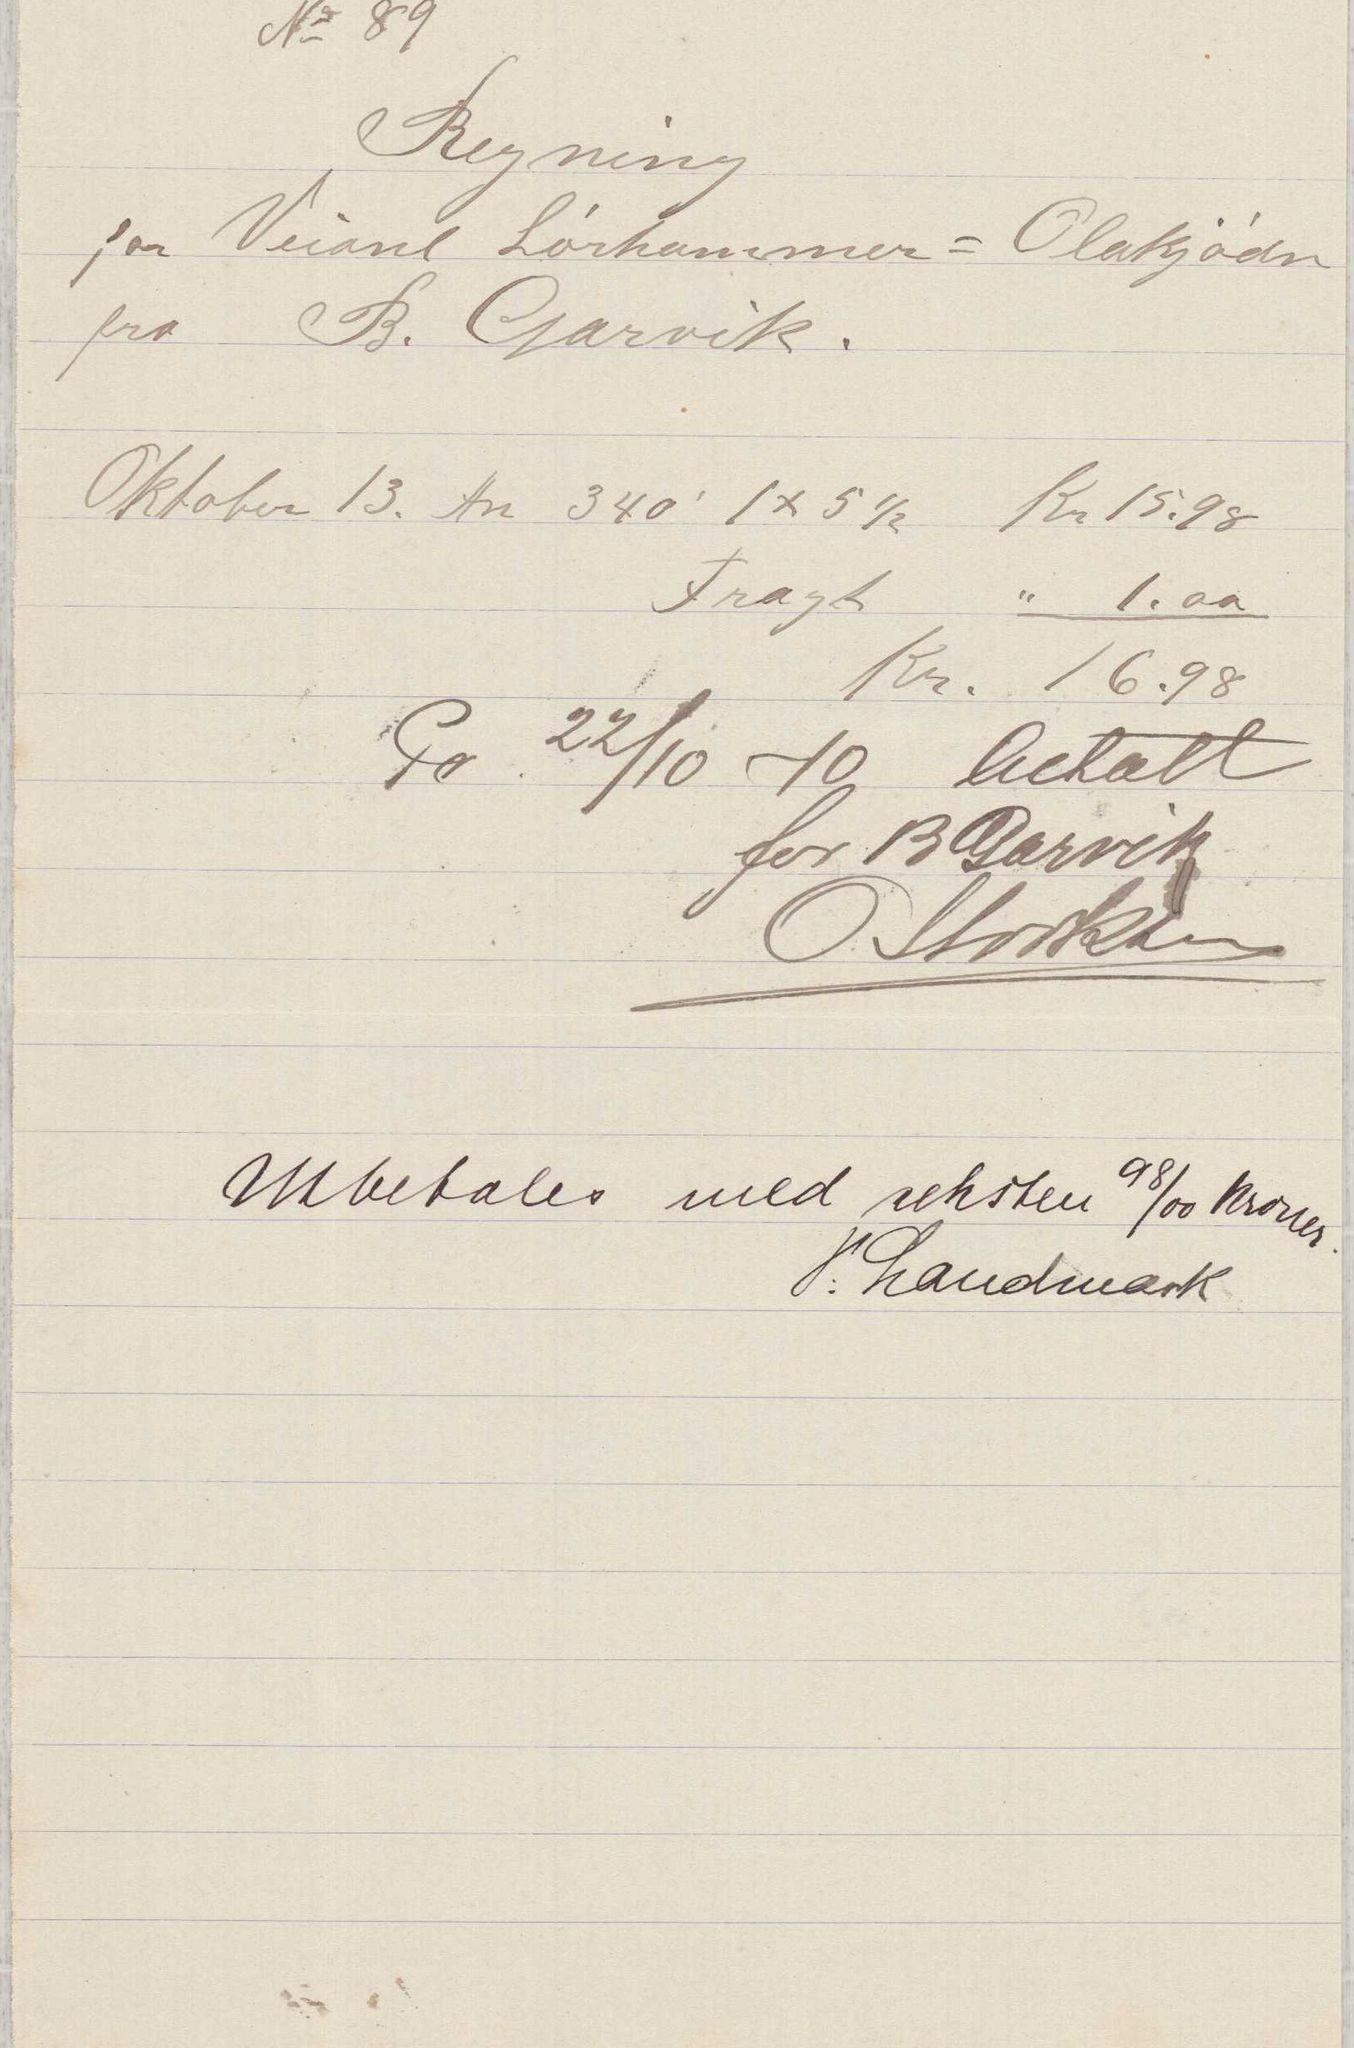 No 89
Regning
for Veianl Lórhammer = Olakjódn
fra B. Garvik.
Oktober 13. An 340' 1 x 5 1/2 Kr 15.98
Fragt " 1.00
Kr. 16.98
22/10 -10 betalt
for B Garvik
O.
Utbetales med seksten 98/00 kroner.
Landmark